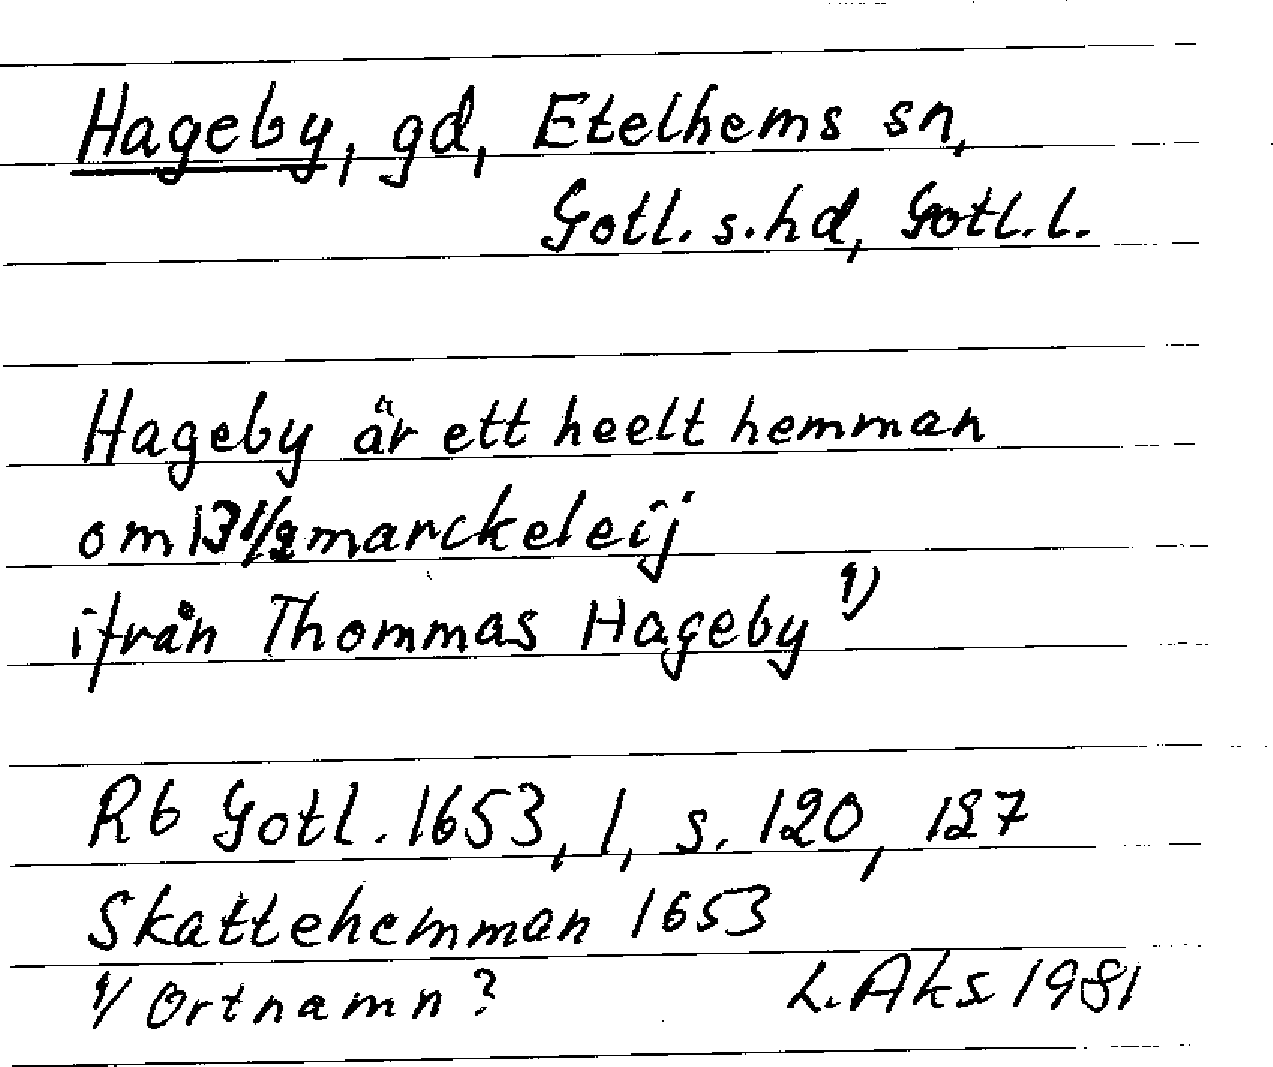 Hageby, gd, Etelhems sn,
Gotl. s. hd, Gotl. l.
Hageby är ett heelt hemman
om 13 1/2 marckeleij
ifrån Thommas Hageby 1)
Rb Gotl. 1653, 1, s. 120, 127
Skattehemman 1653
1/ Ortnamn?
L. Aks 1981